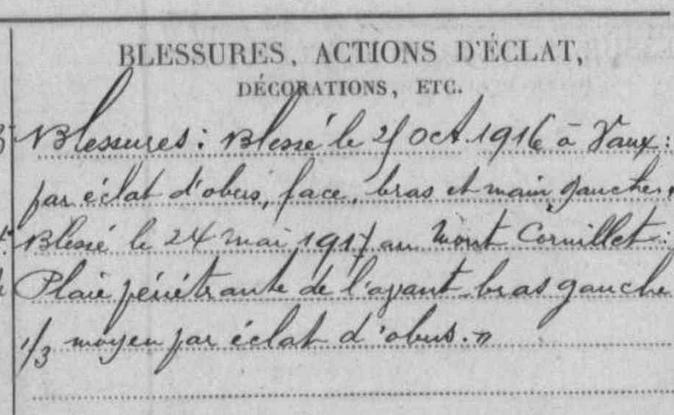 BLESSURES, ACTIONS D'ÉCLAT,
DÉCORATIONS, ETC.
Blessures : Blessé le 21 Oct 1916 à Vaux :
par éclat d'obus, face, bras et main gauches.
Blessé le 24 mai 1917 au Mont Cornillet :
Plaie pénétrante de l'avant-bras gauche
1/3 moyen par éclat d'obus. »